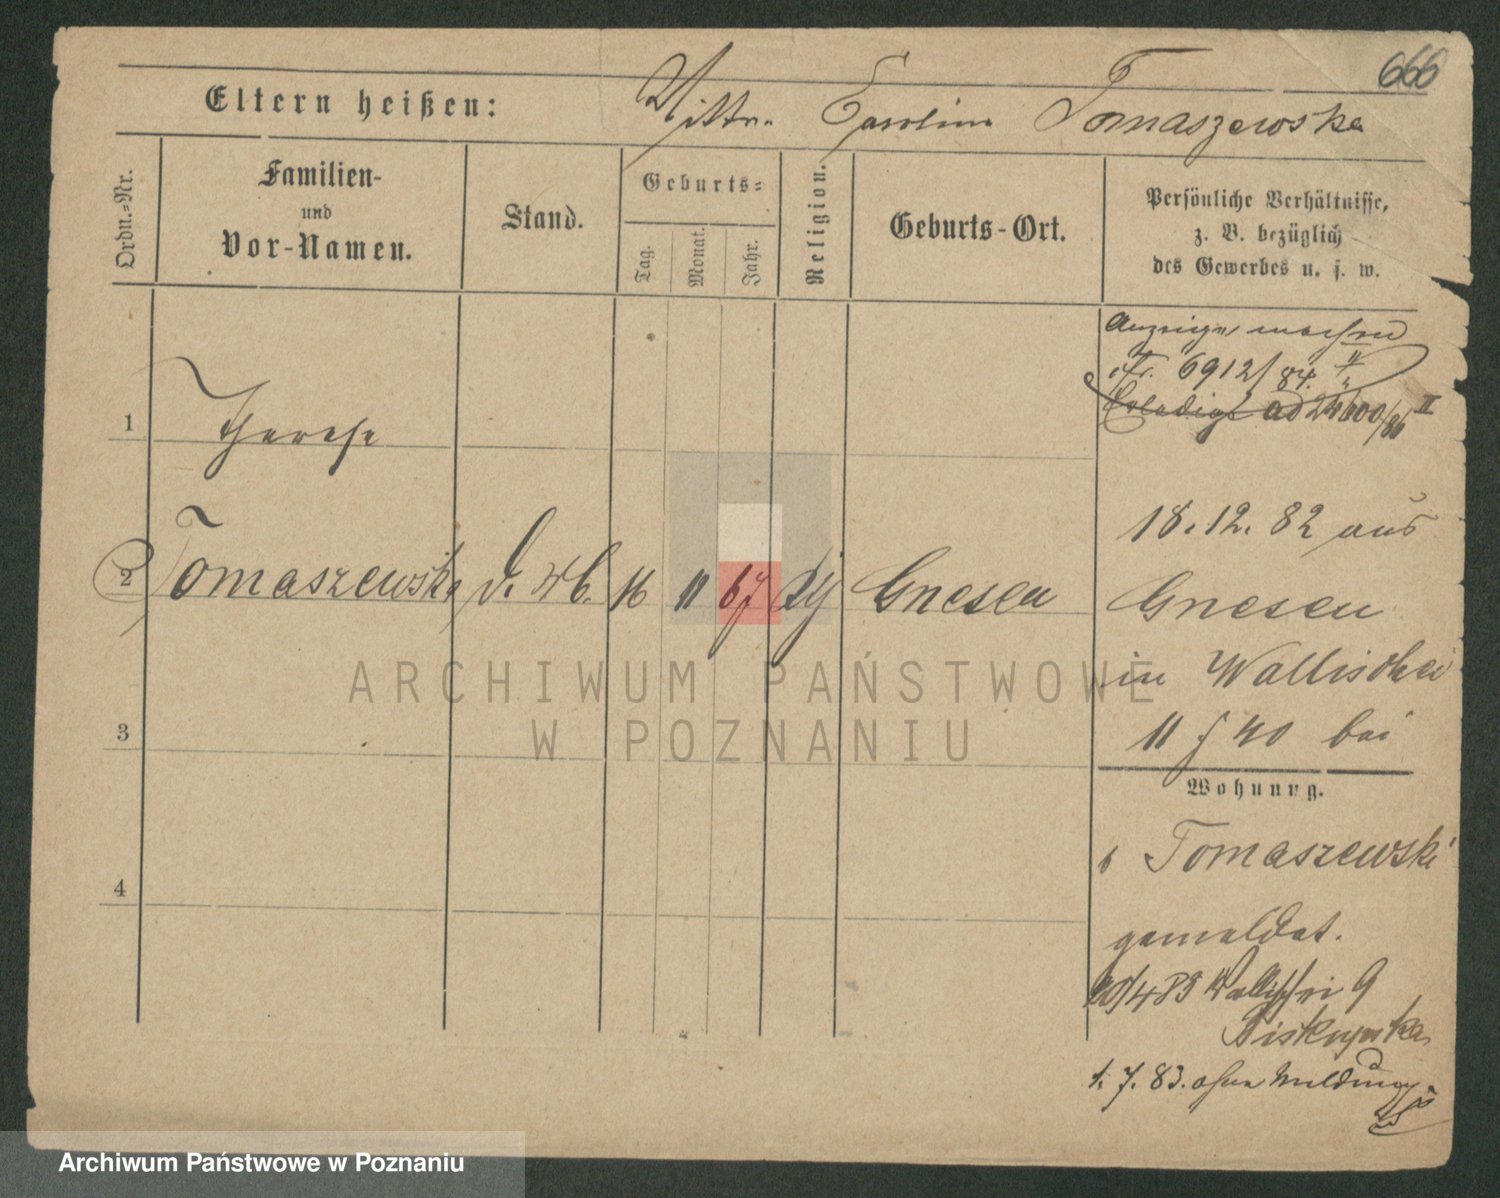 666
Eltern heißen: Wittw. Carolina Tomaszewska
Ordn.=Nr.
Familien-
und
Vor-Namen.
Stand.
Geburts=
Tag.
Monat.
Jahr.
Religion.
Geburts-Ort.
Persönliche Verhältnisse,
z. B. bezüglich
des Gewerbes u. s. w.
Anzeige machen
Nr. 6912/84.
1 Therese
Erledigt ad 24600/86 II
18.12.82 aus
2 Tomaszewska 16 11 67 Gnesen
Gnesen
in Wallischei
ARCHIWUM PAŃSTWOWE
W POZNANIU
3
11 f 40 bei
Wohnung.
Tomaszewski
4
gemeldet.
Wallischei 9
1. 7. 83. ohne Meldung
Archiwum Państwowe w Poznaniu